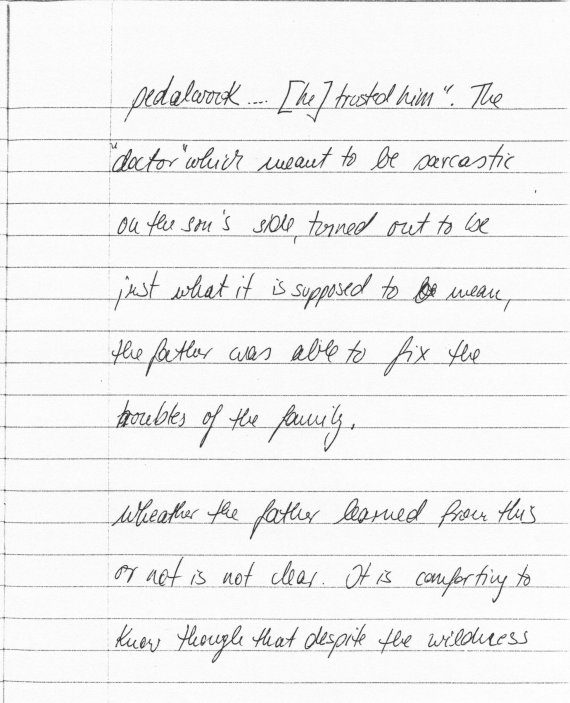 pedalwork .... [he] trusted him". The
"doctor" which meant to be sarcastic
on the son's side, turned out to be
just what it is supposed to mean,
the father was able to fix the
troubles of the family.
Wheather the father learned from this
or not is not clear. It is comforting to
know though that despite the wildness